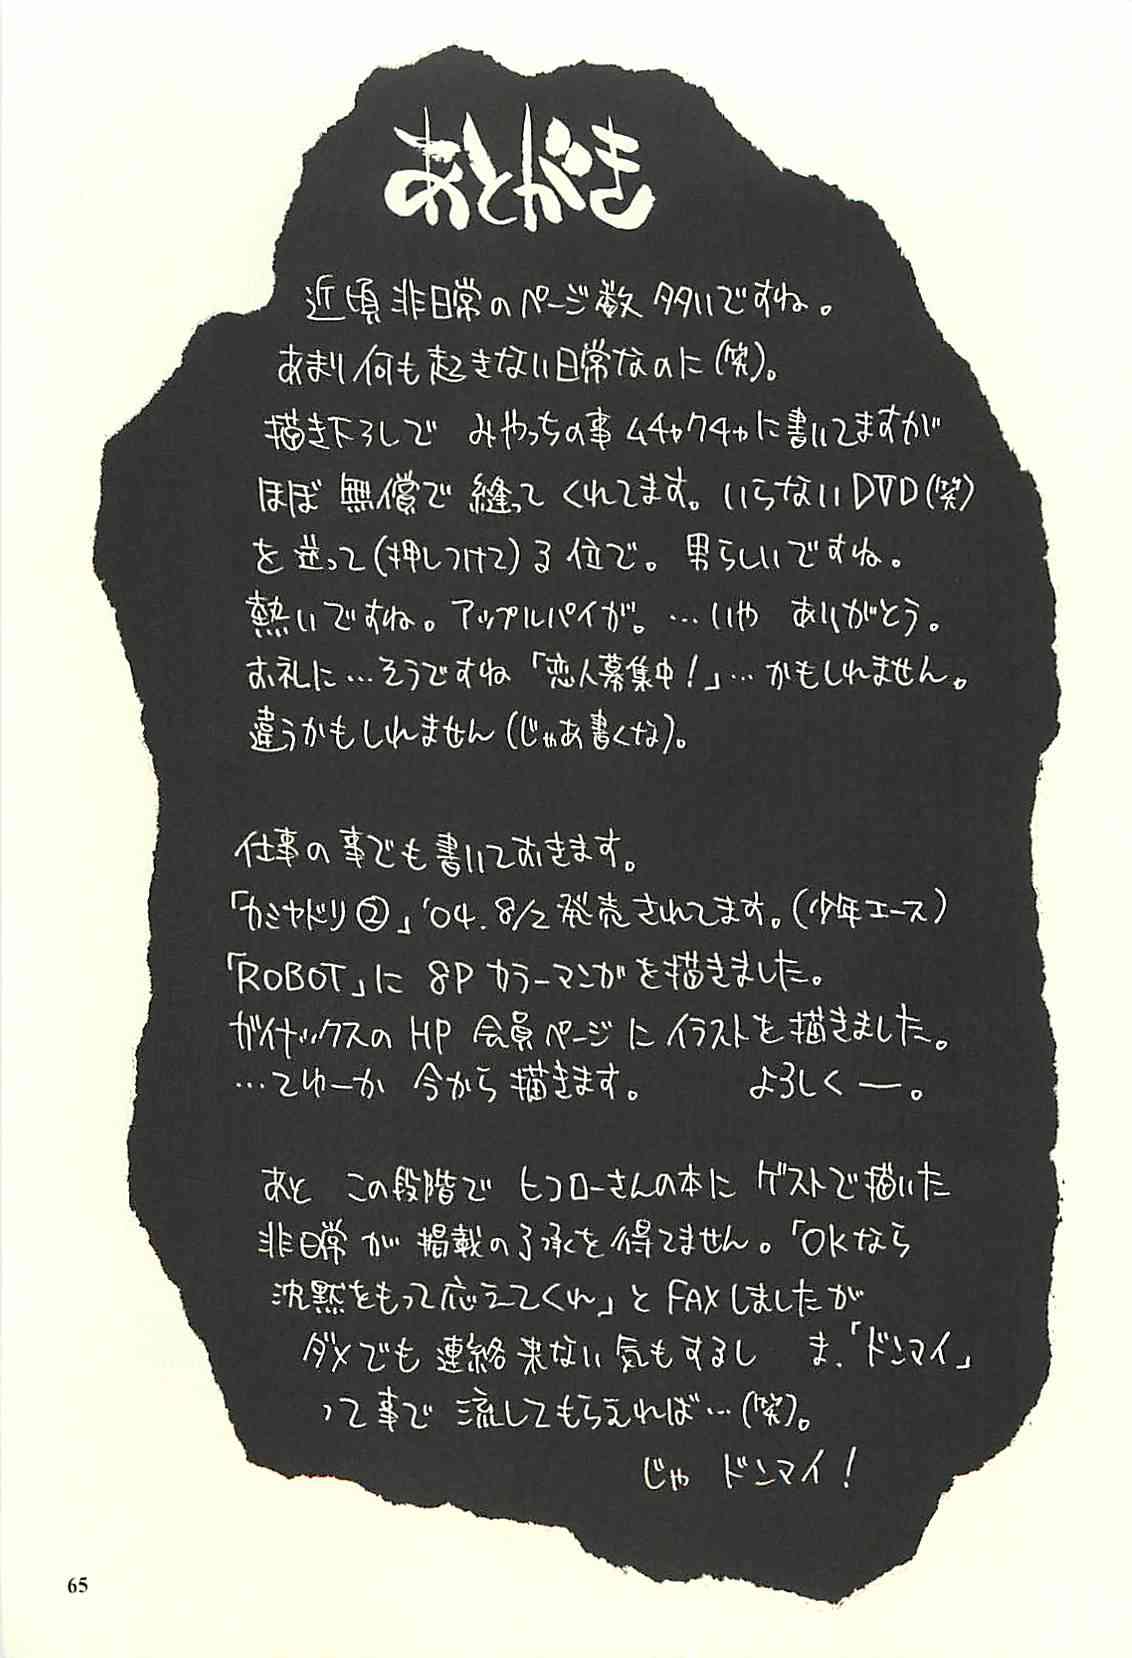 あとがき
近頃 非日常のページ数 多いですね。
あまり何も起きない日常なのに(笑)。
描き下ろしで みやっちの事ムチャクチャに書いてますが
ほぼ 無償で 縫って くれてます。いらないDVD(笑)
を送って(押しつけて)る位で。 男らしいですね。
熱いですね。アップルパイが。…いや ありがとう。
お礼に…そうですね「恋人募集中!」…かもしれません。
違うかもしれません(じゃあ書くな)。
仕事の事でも書いておきます。
「カミヤドリ②」'04.8/2発売されてます。(少年エース)
「ROBOT」に 8P カラーマンガを描きました。
ガイナックスの HP 会員ページ にイラストを描きました。
…てゆーか 今から描きます。 よろしくー。
あと この段階で ヒコローさんの本に ゲストで描いた
非日常が 掲載の了承を得てません。「OKなら
沈黙をもって応えてくれ」と FAXしましたが
ダメでも連絡来ない気もするし ま、「ドンマイ」
って事で 流してもらえれば…(笑)。
じゃ ドンマイ!
65